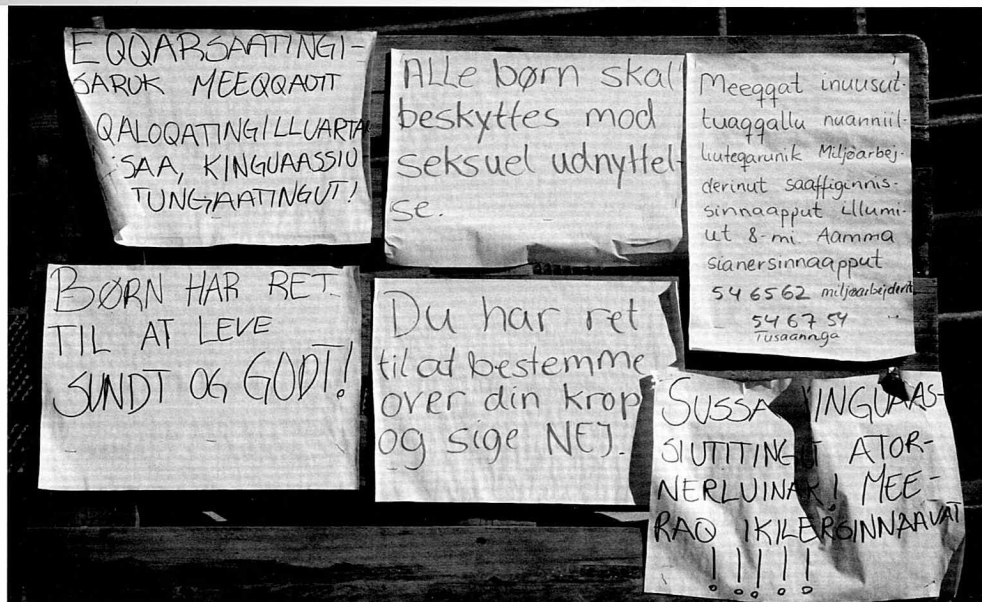 EQQARSAATINGI-
SARUK MEEQQAVIT
QALOQATINGILLUARTA
SAA, KINGUAASSIU
TUNGAATINGUT!
ALLE børn skal
beskyttes mod
seksuel udnyttel-
se.
Meeqqat inuusut-
tuaqqallu nuanniil-
liuteqarunik Miljøarbej-
derinut saaffiginnis-
sinnaapput Illumi-
ut 8-mi. Aamma
sianersinnaapput
54 65 62 miljøarbejderit
54 67 54
Tusaannga
BØRN HAR RET
TIL AT LEVE
SUNDT OG GODT!
Du har ret
til at bestemme
over din krop
og sige NEJ.
ATOR-
NERLUINAK! MEE-
RAQ IKILERSINNAAVAT
!!!!!